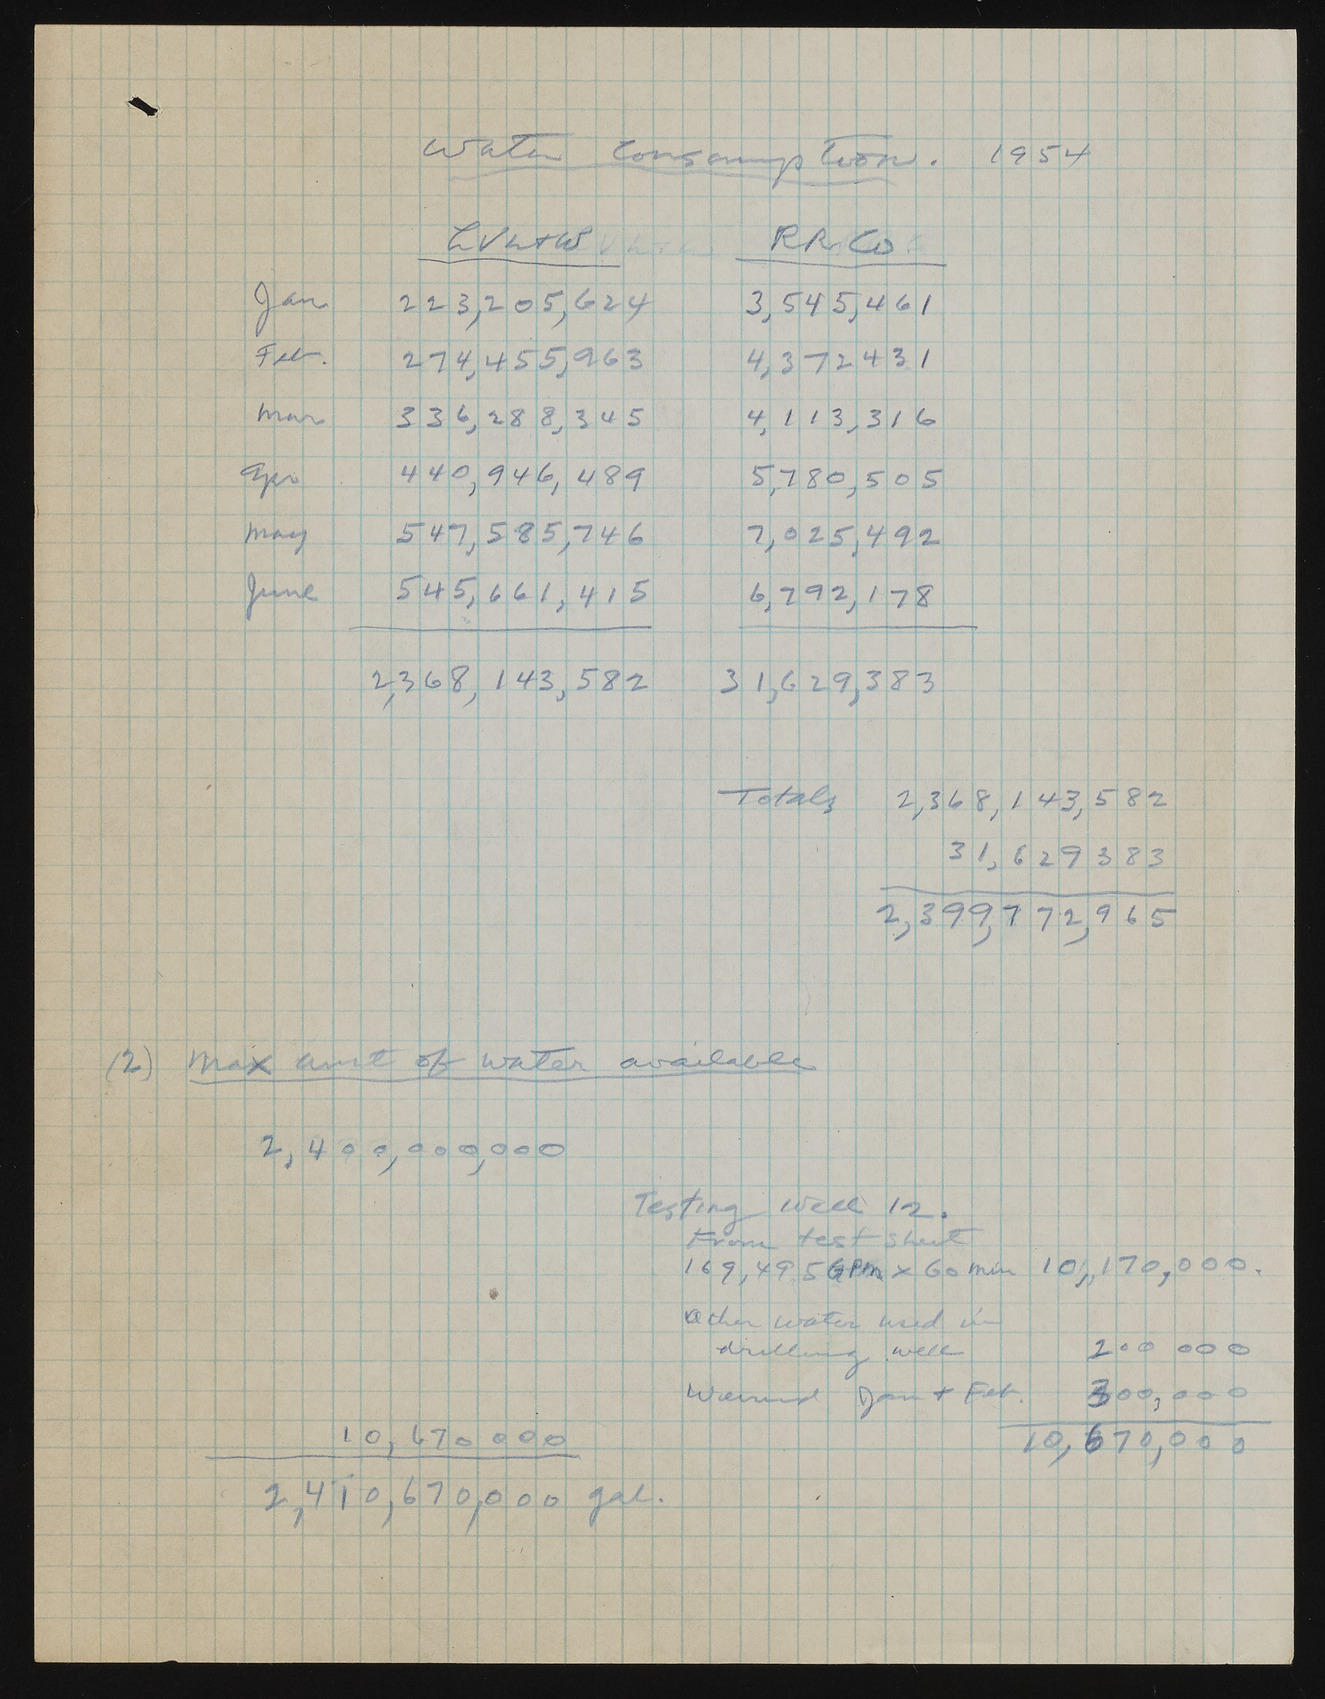 Water Consumption. 1954
LVL+W RR Co
Jan 223,205,624 3,545,461
Feb. 274,455,963 4,372431
Mar 336,288,345 4,113,316
Apr 440,946,489 5,780,505
May 547,585,746 7,025,492
June 545,661,415 6,792,178
2,368,143,582 31,629,383
Totals 2,368,143,582
31,629383
2,399,772,965
(2) Max amt of water available
2,400,000,000
Testing well 12.
From test sheet
169,495 GPM x 60 min 10,170,000.
Other water used in
drilling well 200 000
Jan + Feb. 300,000
10,670000 10,670,000
2,410,670,000 gal.